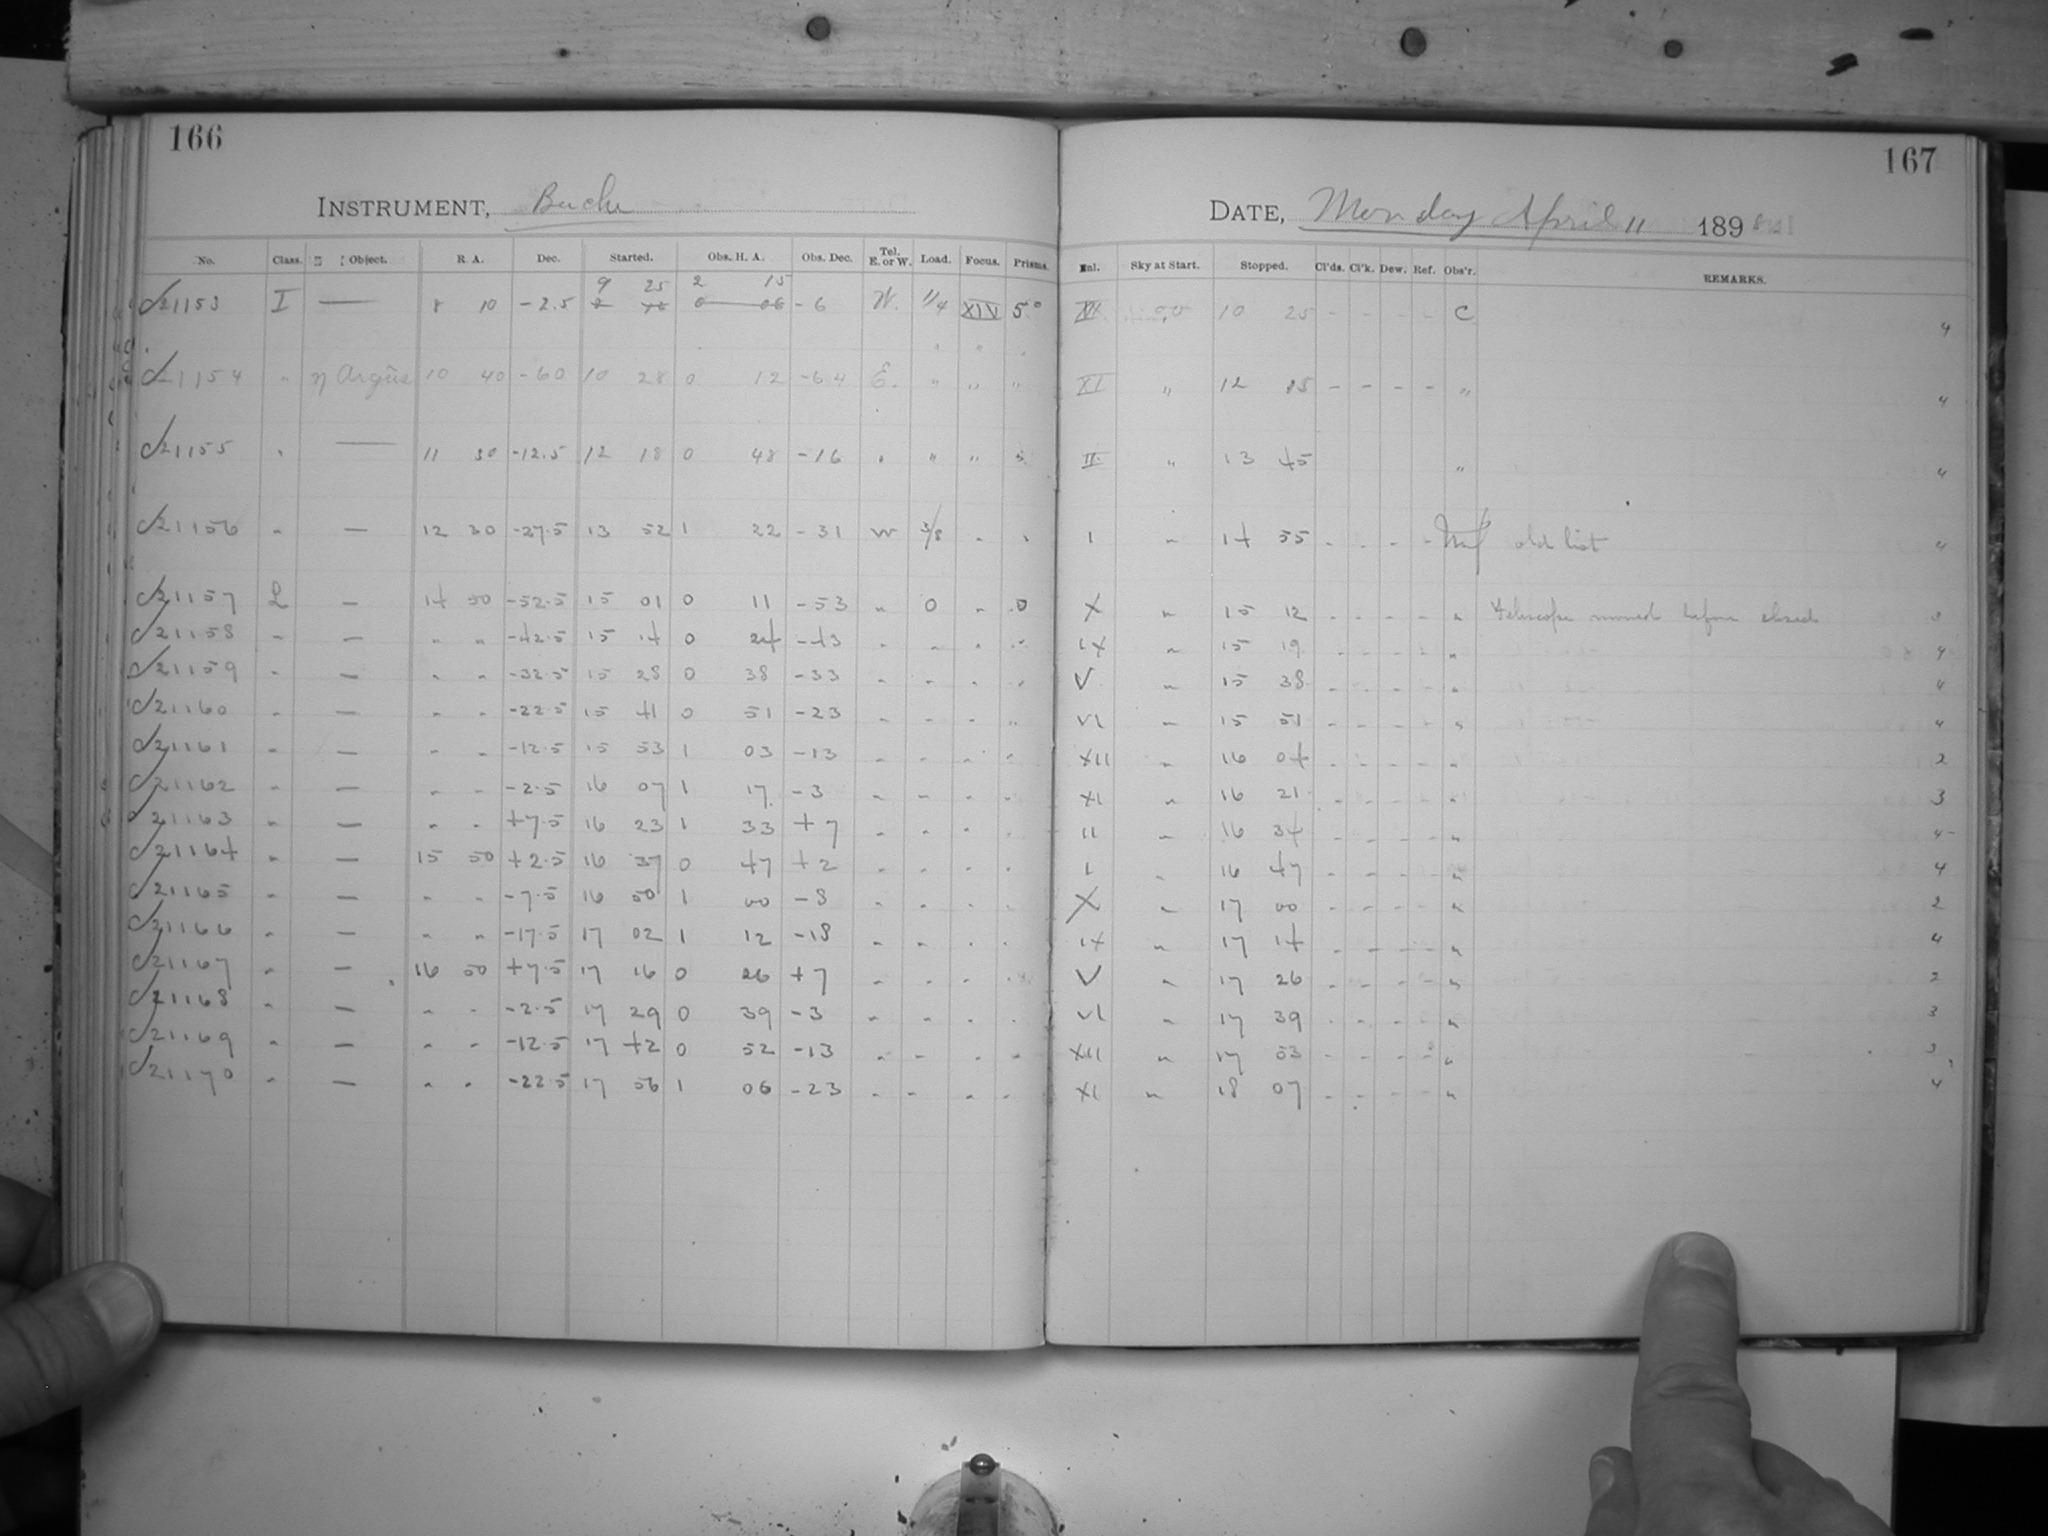 166
167
INSTRUMENT, Bache
DATE, Monday April 11 1898
No. Class. Object. R. A. Dec. Started. Obs. H. A. Obs. Dec. Tel. E. or W. Load. Focus. Prisms. Enl. Sky at Start. Stopped. Cl'ds. Cl'k. Dew. Ref. Obs'r. REMARKS.
9 25 2 15
21153 I — 8 10 -2.5 0 06 -6 W. 1/4 XIV 5° 10 25 - - - - C 4
21154 " η Argûs 10 40 -60 10 28 0 12 -64 E. " " " XI " 12 15 - - - - " 4
21155 " — 11 30 -12.5 12 18 0 48 -16 " " " " II " 13 45 " 4
21156 " — 12 30 -27.5 13 52 1 22 -31 W 3/8 " " I " 14 55 - - - - old list 4
21157 L — 14 50 -52.5 15 01 0 11 -53 " 0 " 0 X " 15 12 - - - - " Telescope moved before closed 3
21158 " — " " -42.5 15 14 0 24 -43 " " " " IX " 15 19 - - - - " 4
21159 " — " " -32.5 15 28 0 38 -33 " " " " V " 15 38 - - - - " 4
21160 " — " " -22.5 15 41 0 51 -23 " " " " VI " 15 51 - - - - " 4
21161 " — " " -12.5 15 53 1 03 -13 " " " " XII " 16 04 - - - - " 2
21162 " — " " -2.5 16 07 1 17 -3 " " " " XI " 16 21 - - - - " 3
21163 " — " " +7.5 16 23 1 33 +7 " " " " II " 16 34 - - - - " 4
21164 " — 15 50 +2.5 16 37 0 47 +2 " " " " I " 16 47 - - - - " 4
21165 " — " " -7.5 16 50 1 00 -8 " " " " X " 17 00 - - - - " 2
21166 " — " " -17.5 17 02 1 12 -18 " " " " IX " 17 14 - - - - " 4
21167 " — 16 50 +7.5 17 16 0 26 +7 " " " " V " 17 26 - - - - " 2
21168 " — " " -2.5 17 29 0 39 -3 " " " " VI " 17 39 - - - - " 3
21169 " — " " -12.5 17 42 0 52 -13 " " " " XII " 17 53 - - - - " 3
21170 " — " " -22.5 17 56 1 06 -23 " " " " XI " 18 07 - - - - " 4